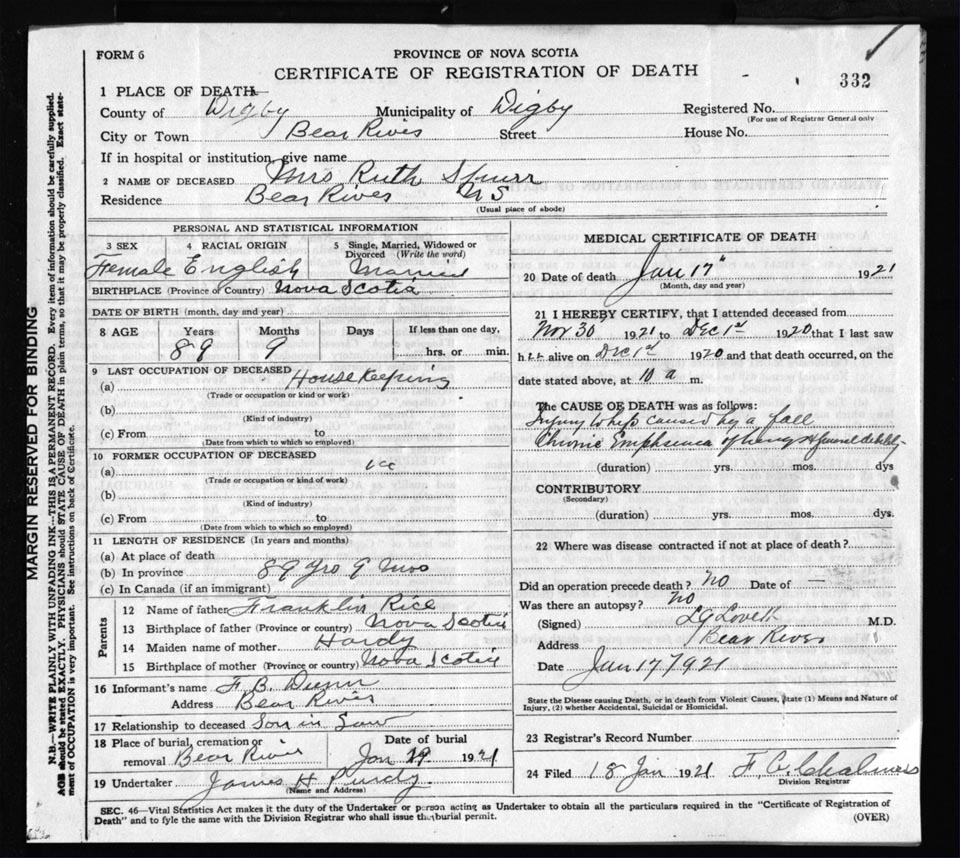 FORM 6
PROVINCE OF NOVA SCOTIA
CERTIFICATE OF REGISTRATION OF DEATH
332
1 PLACE OF DEATH
County of Digby Municipality of Digby Registered No.
(For use of Registrar General only
City or Town Bear River Street House No.
If in hospital or institution, give name
2 NAME OF DECEASED Mrs Ruth Spurr
Residence Bear River NS
(Usual place of abode)
PERSONAL AND STATISTICAL INFORMATION
3 SEX 4 RACIAL ORIGIN 5 Single, Married, Widowed or Divorced (Write the word)
Female English Married
BIRTHPLACE (Province or Country) Nova Scotia
DATE OF BIRTH (month, day and year)
8 AGE Years Months Days If less than one day,
89 9 hrs. or min.
9 LAST OCCUPATION OF DECEASED
(a) House Keeping
(Trade or occupation or kind or work)
(b)
(Kind of industry)
(c) From to
(Date from which to which so employed)
10 FORMER OCCUPATION OF DECEASED
(a)
(Trade or occupation or kind of work)
(b)
(Kind of industry)
(c) From to
(Date from which to which so employed)
11 LENGTH OF RESIDENCE (In years and months)
(a) At place of death
(b) In province 89 yrs 9 mos
(c) In Canada (if an immigrant)
Parents
12 Name of father Franklin Rice
13 Birthplace of father (Province or country) Nova Scotia
14 Maiden name of mother Hardy
15 Birthplace of mother (Province or country) Nova Scotia
16 Informant's name F. B. Dunn
Address Bear River
17 Relationship to deceased Son in Law
18 Place of burial, cremation or removal Bear River Date of burial Jan 19 1921
19 Undertaker James H Purdy
(Name and Address)
MEDICAL CERTIFICATE OF DEATH
20 Date of death Jan 17" 1921
(Month, day and year)
21 I HEREBY CERTIFY, that I attended deceased from
Nov 30 1921 to Dec 1st 1920 that I last saw
her alive on Dec 1st 1920 and that death occurred, on the
date stated above, at 10 a m.
The CAUSE OF DEATH was as follows:
Injury to hip caused by a fall
Chronic Emphsema of lungs & general debility
(duration) yrs. mos. dys
CONTRIBUTORY
(Secondary)
(duration) yrs. mos. dys.
22 Where was disease contracted if not at place of death?
Did an operation precede death? No Date of —
Was there an autopsy? No
(Signed) L G Lovett M.D.
Address Bear River
Date Jan 17 1921
State the Disease causing Death, or in death from Violent Causes, State (1) Means and Nature of
Injury, (2) whether Accidental, Suicidal or Homicidal.
23 Registrar's Record Number
24 Filed 18 Jan 1921 F. C. Chalmers
Division Registrar
SEC. 46—Vital Statistics Act makes it the duty of the Undertaker or person acting as Undertaker to obtain all the particulars required in the "Certificate of Registration of
Death" and to fyle the same with the Division Registrar who shall issue the burial permit.
(OVER)
MARGIN RESERVED FOR BINDING
N.B.—WRITE PLAINLY WITH UNFADING INK—THIS IS A PERMANENT RECORD. Every item of information should be carefully supplied.
AGE should be stated EXACTLY. PHYSICIANS should STATE CAUSE OF DEATH in plain terms, so that it may be properly classified. Exact state-
ment of OCCUPATION is very important. See instructions on back of Certificate.